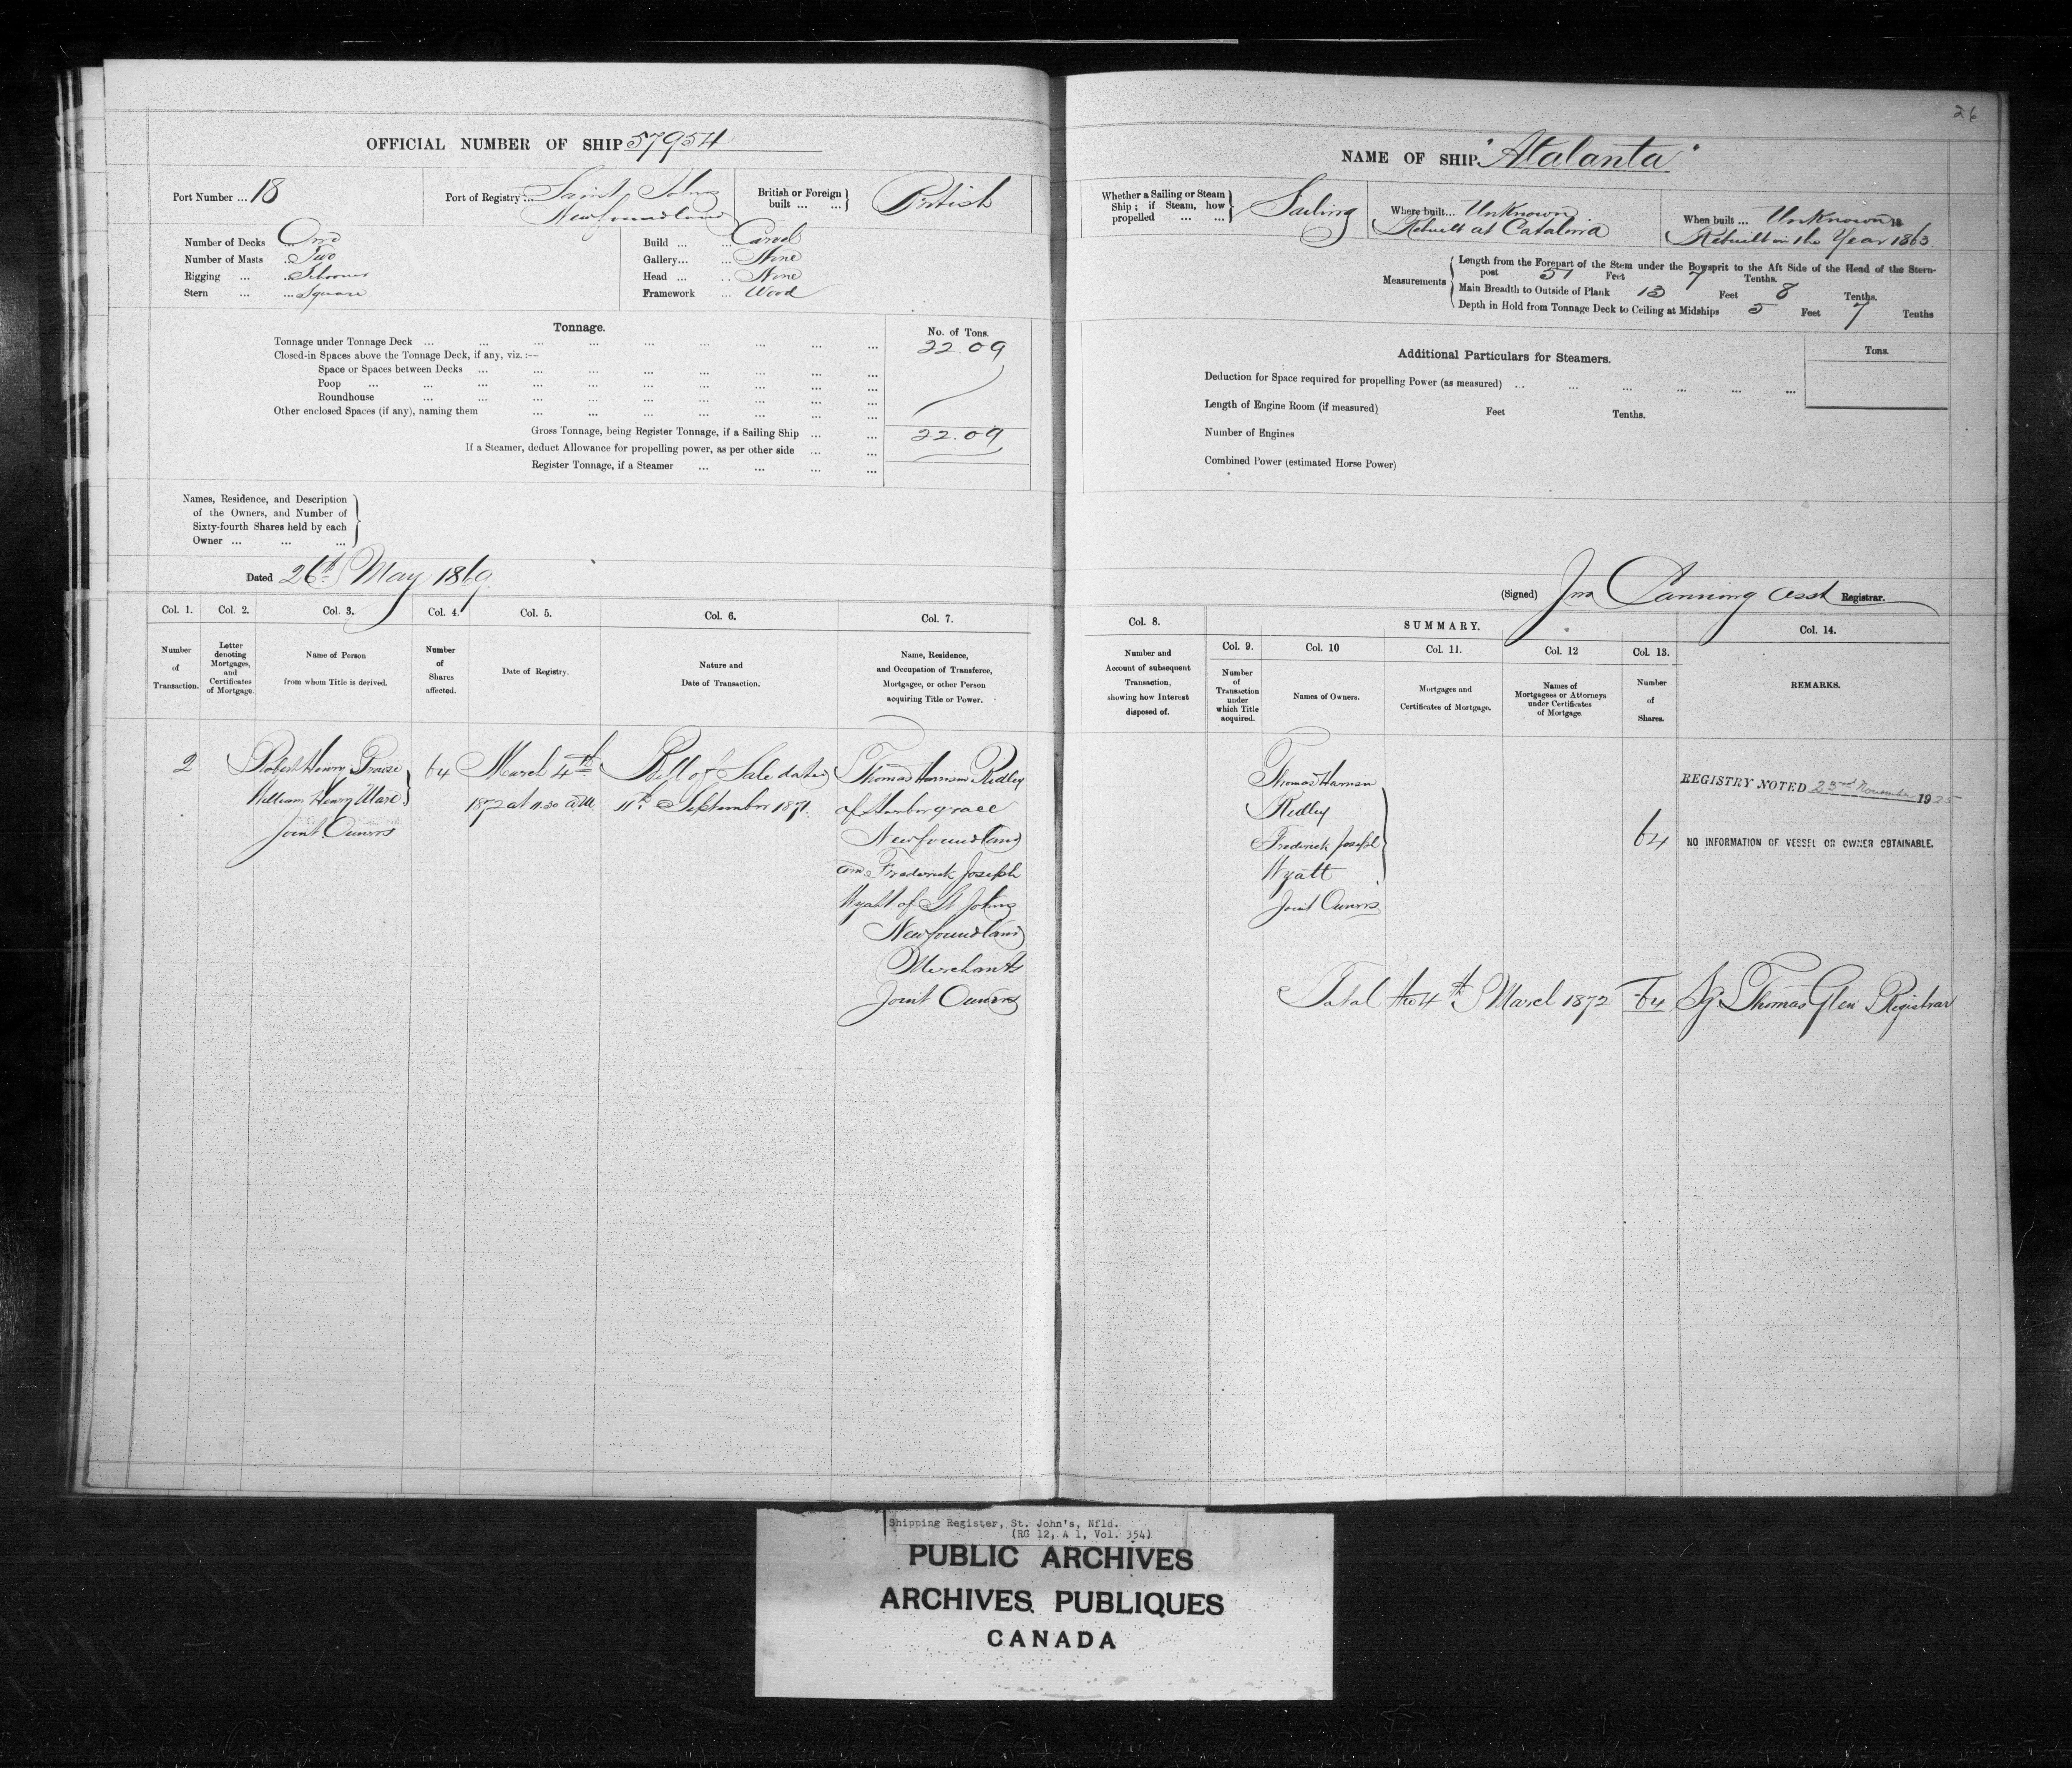 26
OFFICIAL NUMBER OF SHIP 57954
Port Number ... 18
Port of Registry ... Saint Johns
Newfoundland
British or Foreign built ... ... British
Number of Decks One
Number of Masts ... Two
Rigging ... ... Schooner
Stern ... ... Square
Build ... ... Carvel
Gallery... ... None
Head ... ... None
Framework ... Wood
Tonnage.
No. of Tons.
Tonnage under Tonnage Deck ... 22.09
Closed-in Spaces above the Tonnage Deck, if any, viz. :—
Space or Spaces between Decks ...
Poop ...
Roundhouse ...
Other enclosed Spaces (if any), naming them ...
Gross Tonnage, being Register Tonnage, if a Sailing Ship ... 22.09
If a Steamer, deduct Allowance for propelling power, as per other side ...
Register Tonnage, if a Steamer ...
Names, Residence, and Description
of the Owners, and Number of
Sixty-fourth Shares held by each
Owner ... ... ...
Dated 26th May 1869.
Col. 1. Col. 2. Col. 3. Col. 4. Col. 5. Col. 6. Col. 7.
Number
of
Transaction.
Letter
denoting
Mortgages,
and
Certificates
of Mortgage.
Name of Person
from whom Title is derived.
Number
of
Shares
affected.
Date of Registry.
Nature and
Date of Transaction.
Name, Residence,
and Occupation of Transferee,
Mortgagee, or other Person
acquiring Title or Power.
2
Robert Henry Prowse
William Henry Mare
Joint Owners
64
March 4th
1872 at 11.30 a.m
Bill of Sale dated
11th September 1871.
Thomas Harrison Ridley
of Harbor grace
Newfoundland
and Frederick Joseph
Wyatt of St Johns
Newfoundland
Merchants
Joint Owners
NAME OF SHIP "Atalanta"
Whether a Sailing or Steam
Ship; if Steam, how
propelled ... ...
Sailing
Where built... Unknown
Rebuilt at Catalina
When built ... Unknown 18
Rebuilt in the Year 1863.
Measurements
Length from the Forepart of the Stem under the Bowsprit to the Aft Side of the Head of the Stern-
post 51 Feet 7 Tenths.
Main Breadth to Outside of Plank 13 Feet 8 Tenths.
Depth in Hold from Tonnage Deck to Ceiling at Midships 5 Feet 7 Tenths
Additional Particulars for Steamers.
Tons.
Deduction for Space required for propelling Power (as measured) ...
Length of Engine Room (if measured) Feet Tenths.
Number of Engines
Combined Power (estimated Horse Power)
(Signed) Jno Canning Asst Registrar.
Col. 8.
SUMMARY.
Col. 9. Col. 10 Col. 11. Col. 12 Col. 13. Col. 14.
Number and
Account of subsequent
Transaction,
showing how Interest
disposed of.
Number
of
Transaction
under
which Title
acquired.
Names of Owners.
Mortgages and
Certificates of Mortgage.
Names of
Mortgagees or Attorneys
under Certificates
of Mortgage.
Number
of
Shares.
REMARKS.
Thomas Harrison
Ridley
Frederick Joseph
Wyatt
Joint Owners
64
REGISTRY NOTED 23rd November 1925
NO INFORMATION OF VESSEL OR OWNER OBTAINABLE.
Total the 4th March 1872 64 Sg. Thomas Glen Registrar
Shipping Register, St. John's, Nfld.
(RG 12, A 1, Vol. 354)
PUBLIC ARCHIVES
ARCHIVES PUBLIQUES
CANADA